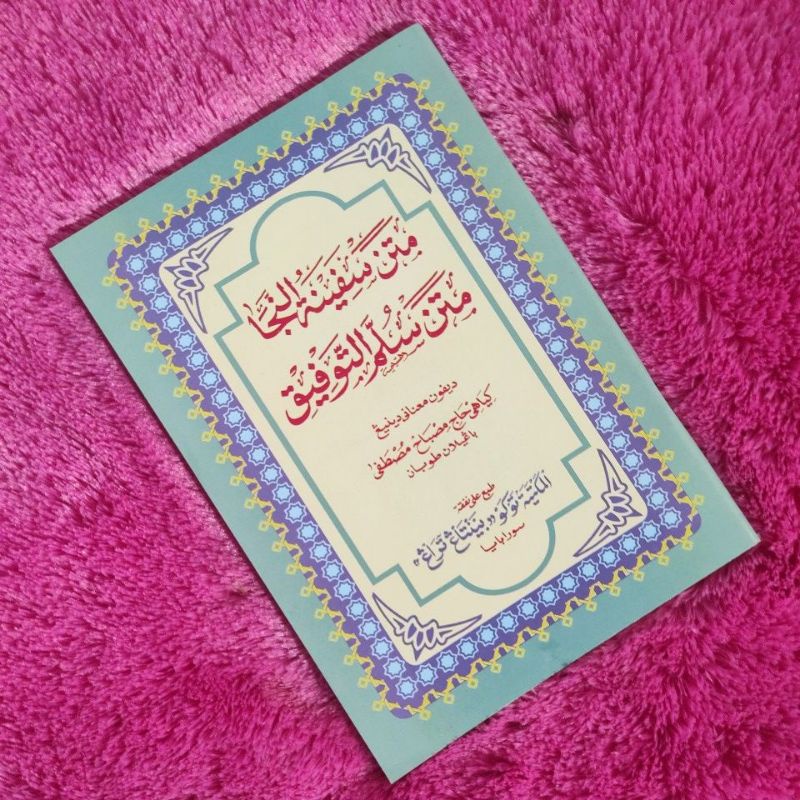 متن سَفِينَةُ النَّجَا
متن سُلَّمُ التَّوْفِيْقِ
ديفون معناني دينيڠ
كياهي حاج مصباح مصطفى
باڠيلان طوبان
طبع على نفقة
المكتبة توكو "بينتاڠ تراڠ"
سورابايا